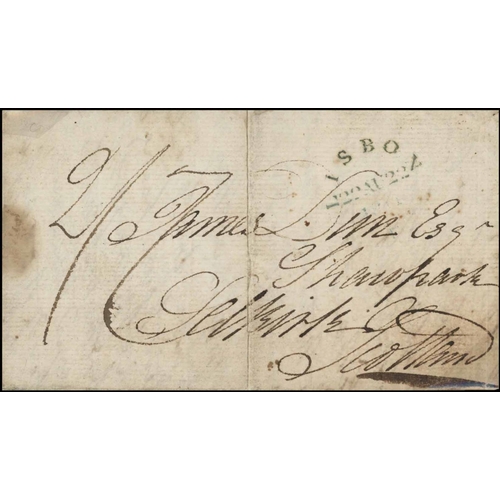 ISBO
2/
James Dun Esqr
Shawpark
Selkirk
Scotland